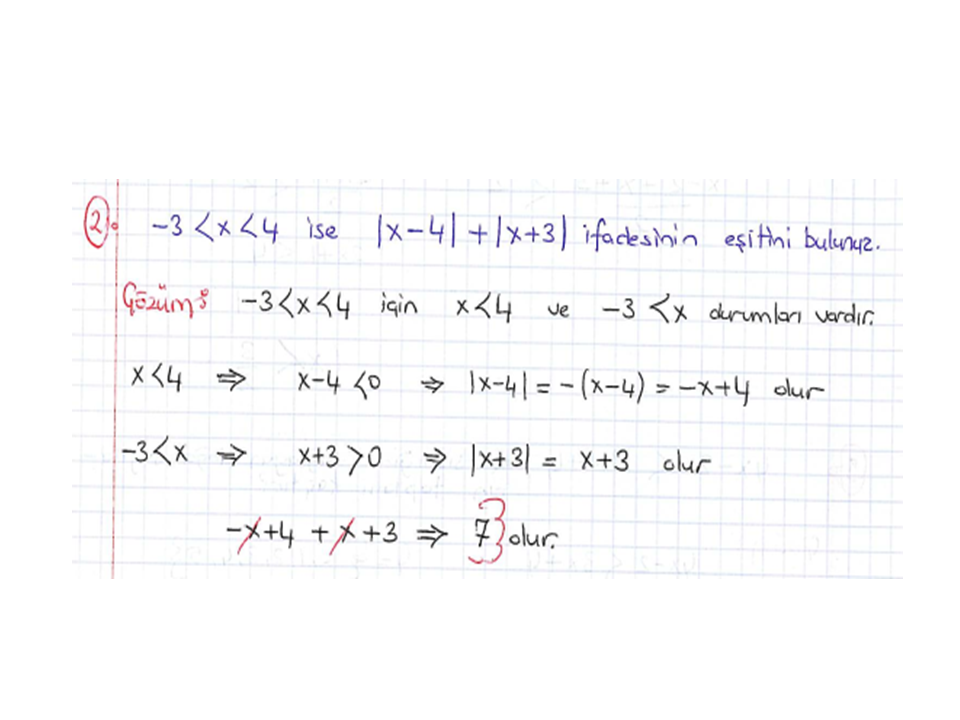 2. -3<x<4 ise |x-4|+|x+3| ifadesinin eşitini bulunuz.
Çözüm: -3<x<4 için x<4 ve -3<x durumları vardır.
x<4 ⇒ x-4<0 ⇒ |x-4| = -(x-4) = -x+4 olur
-3<x ⇒ x+3>0 ⇒ |x+3| = x+3 olur
-x+4 + x+3 ⇒ 7 olur.